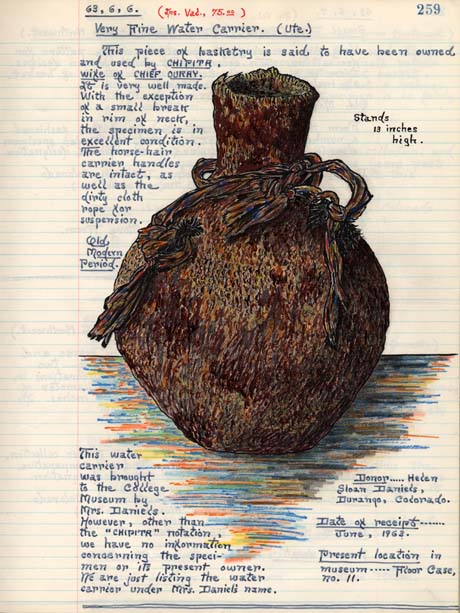 63, G, G. (Ins. Val., 75.00) 259
Very Fine Water Carrier. (Ute.)
This piece of basketry is said to have been owned
and used by CHIPITA,
wife of CHIEF OURAY.
It is very well made.
With the exception
of a small break
in rim of neck,
the specimen is in
excellent condition.
The horse-hair
carrier handles
are intact, as
well as the
dirty cloth
rope for
suspension.
Old,
Modern
Period.
Stands
13 inches
high.
This water
carrier
was brought
to the College
Museum by
Mrs. Daniels.
However, other than
the "CHIPITA" notation,
we have no information
concerning the speci-
men or its present owner.
We are just listing the water
carrier under Mrs. Daniels name.
Donor..... Helen
Sloan Daniels,
Durango, Colorado.
Date of receipt-------
June, 1963.
Present location in
museum----- Floor Case,
no. 11.